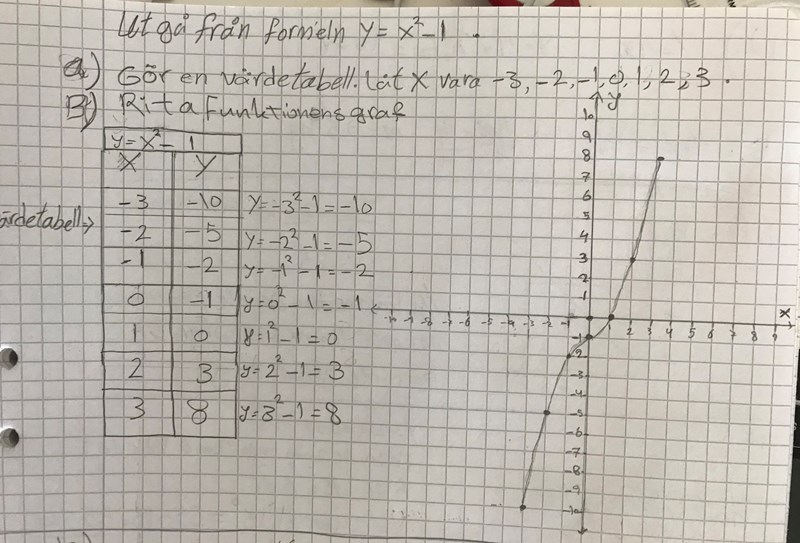 Utgå från formeln y = x²-1.
a) Gör en värdetabell. Låt X vara -3, -2, -1, 0, 1, 2, 3.
B) Rita funktionens graf
y = x² - 1
X Y
-3 -10 y = -3²-1 = -10
-2 -5 y = -2²-1 = -5
-1 -2 y = -1²-1 = -2
0 -1 y = 0²-1 = -1
1 0 y = 1²-1 = 0
2 3 y = 2²-1 = 3
3 8 y = 3²-1 = 8
ärdetabell→
y
10
9
8
7
6
5
4
3
2
1
x
-10 -9 -8 -7 -6 -5 -4 -3 -2 -1 1 2 3 4 5 6 7 8 9
-1
-2
-3
-4
-5
-6
-7
-8
-9
-10